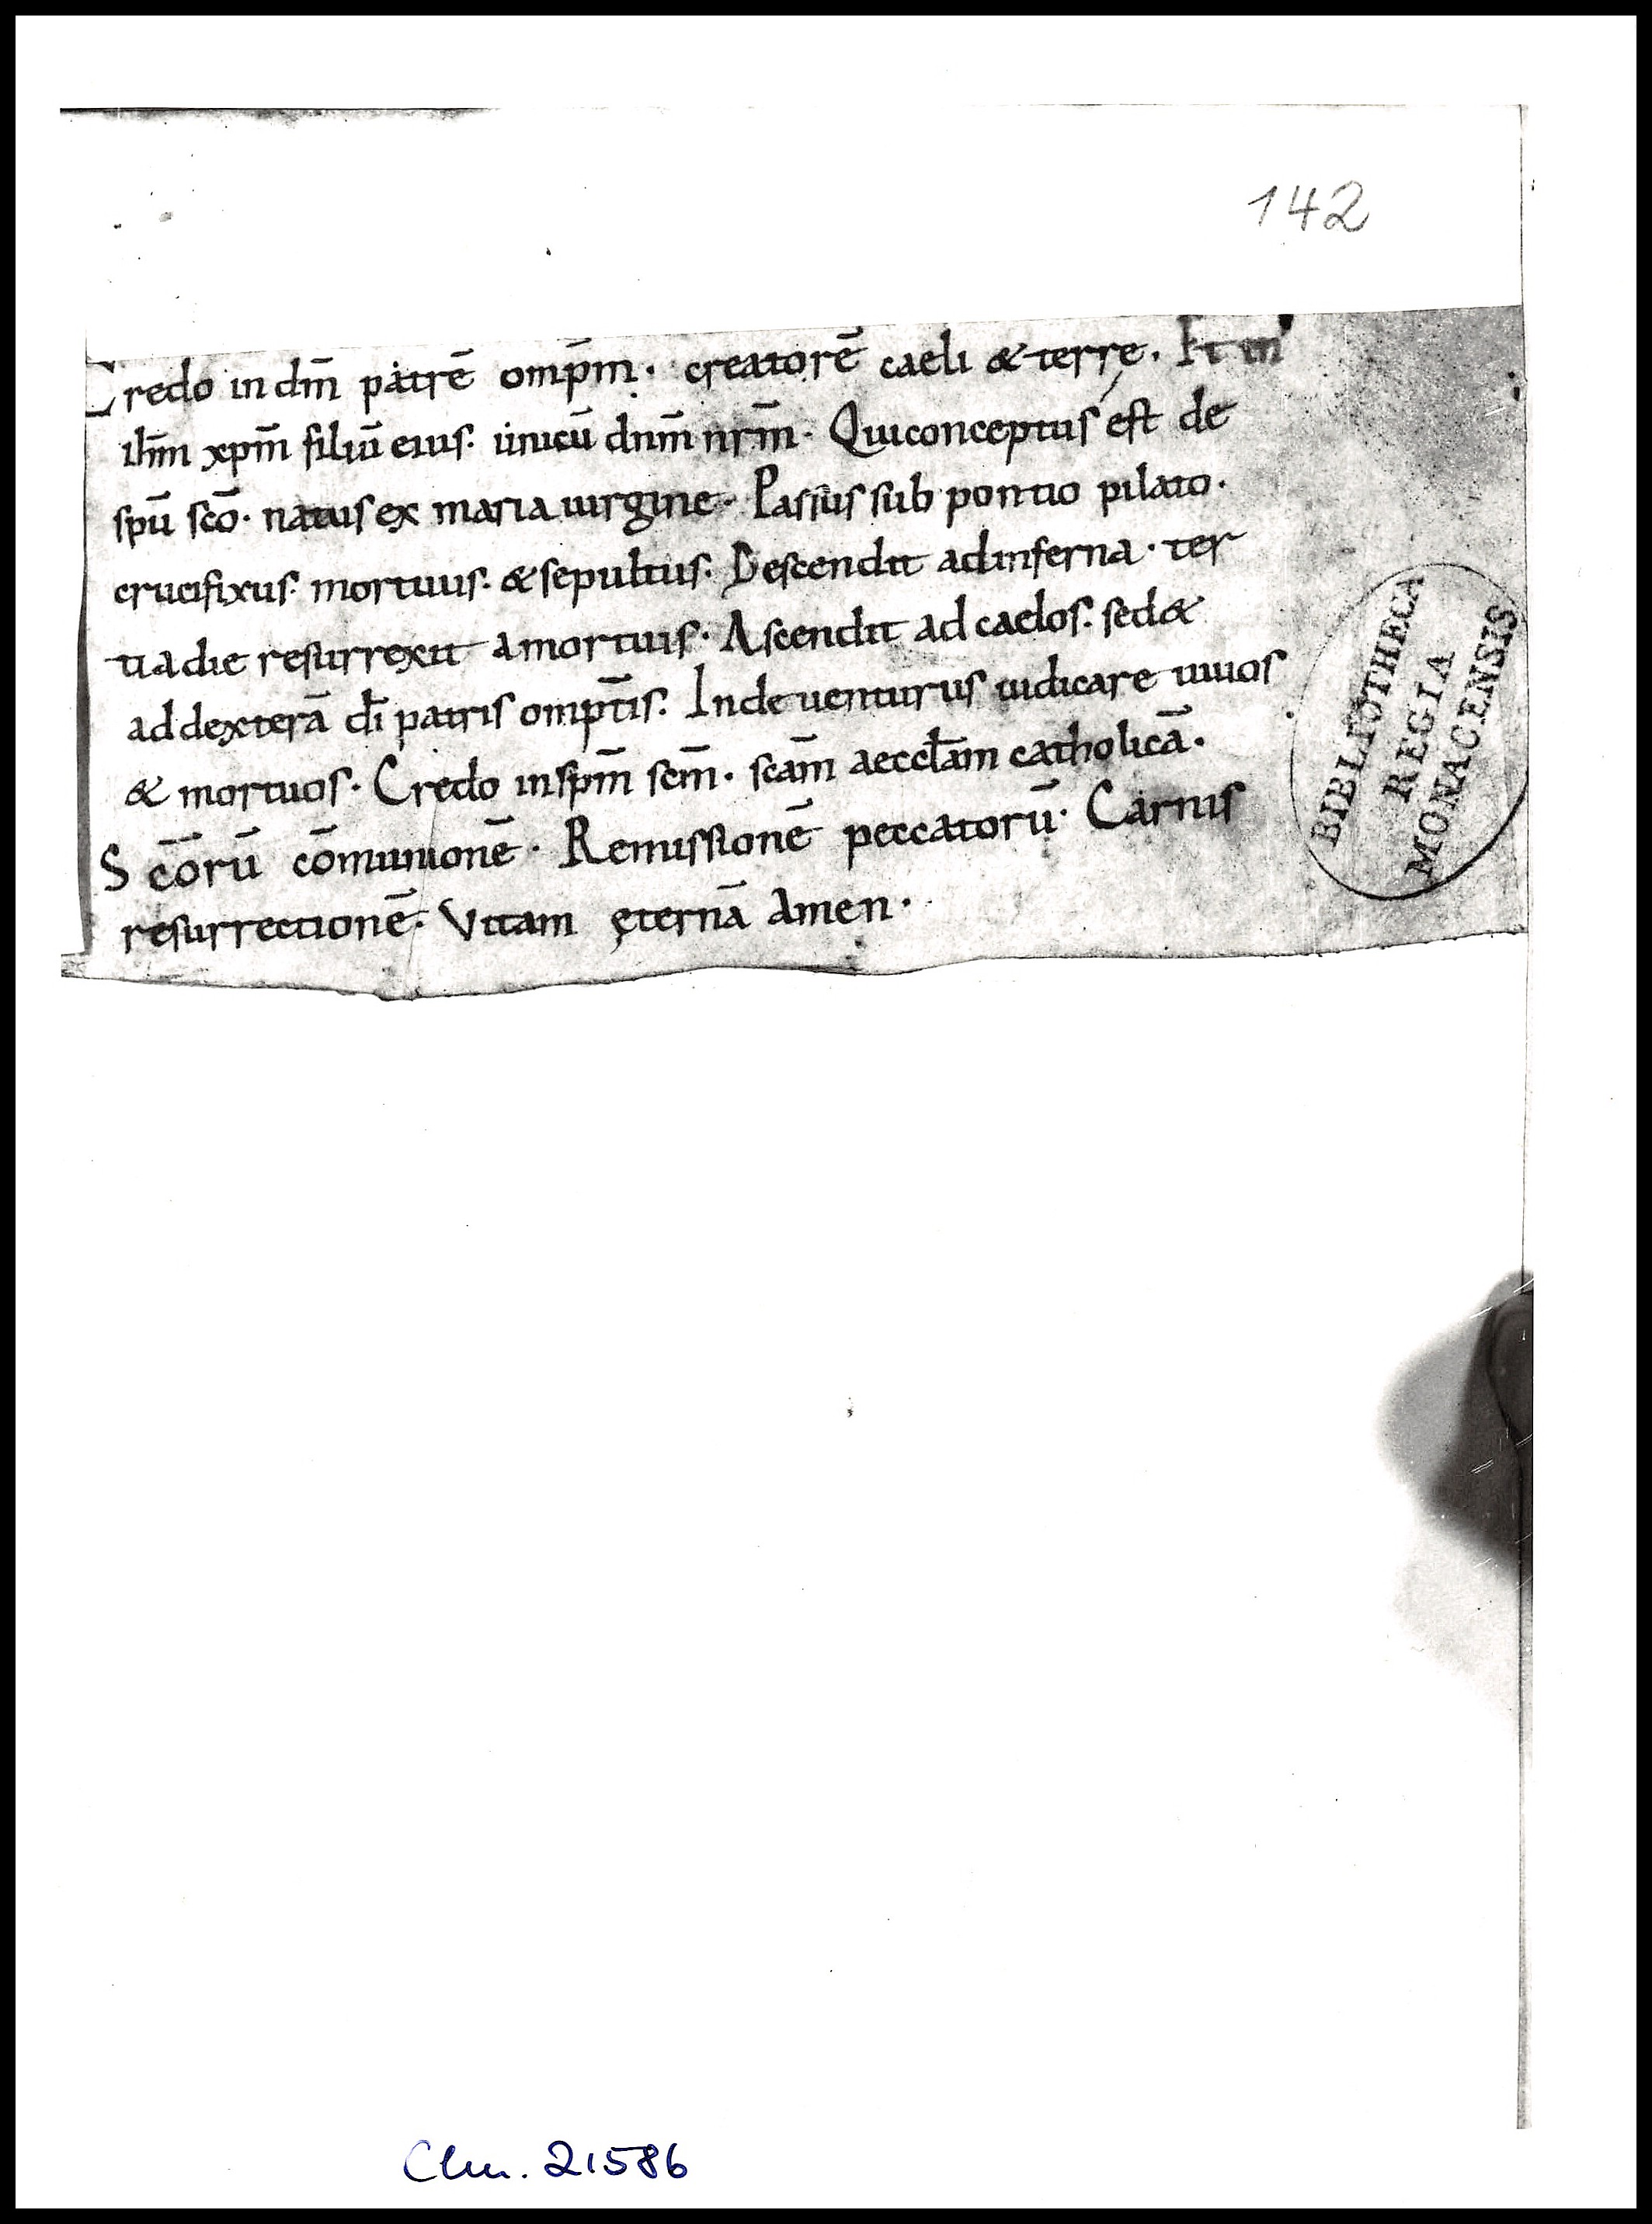 142
Credo in dm̄ patrē omp̄m. creatorē caeli & terrę. Et in
ihm̄ xpm̄ filiū eius. unicū dnm̄ nrm̄. Qui conceptus est de
spū scō. natus ex maria uirgine. Passus sub pontio pilato.
crucifixus. mortuus. & sepultus. Descendit ad inferna. ter
tia die resurrexit a mortuis. Ascendit ad caelos. sed&
ad dexterā dī patris ompt̄is. Inde uenturus iudicare uiuos
& mortuos. Credo in spm̄ scm̄. scām aeccl̄am catholicā.
Scōrū cōmunionē. Remissionē peccatorū. Carnis
resurrectionē. Vitam ęternā Amen.
BIBLIOTHECA
REGIA
MONACENSIS
Clm. 21586